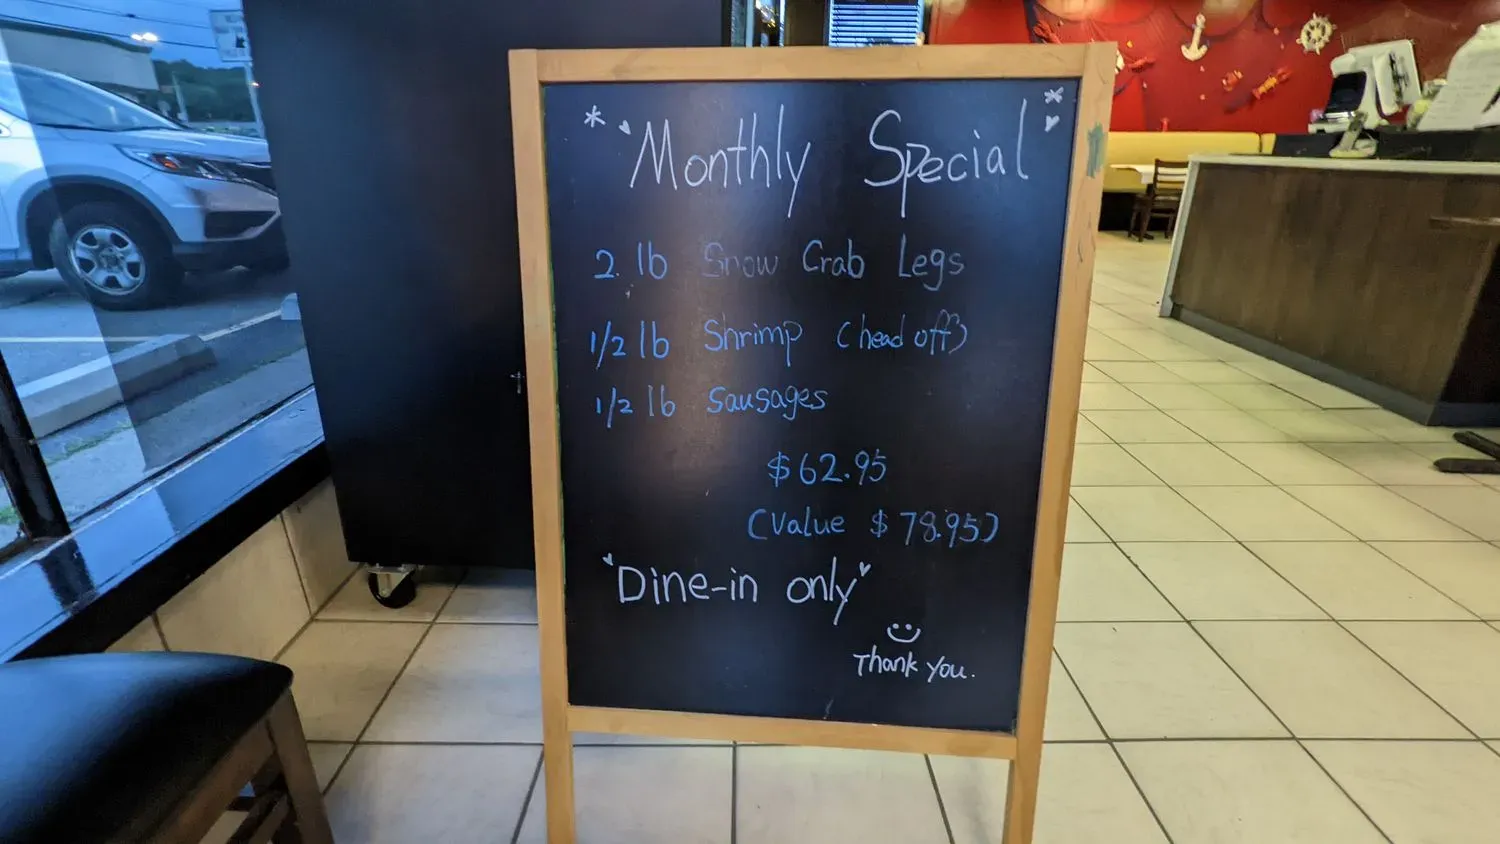 Monthly Special
2 lb Snow Crab Legs
1/2 lb Shrimp (head off)
1/2 lb Sausages
$62.95
(Value $78.95)
Dine-in only
Thank you.